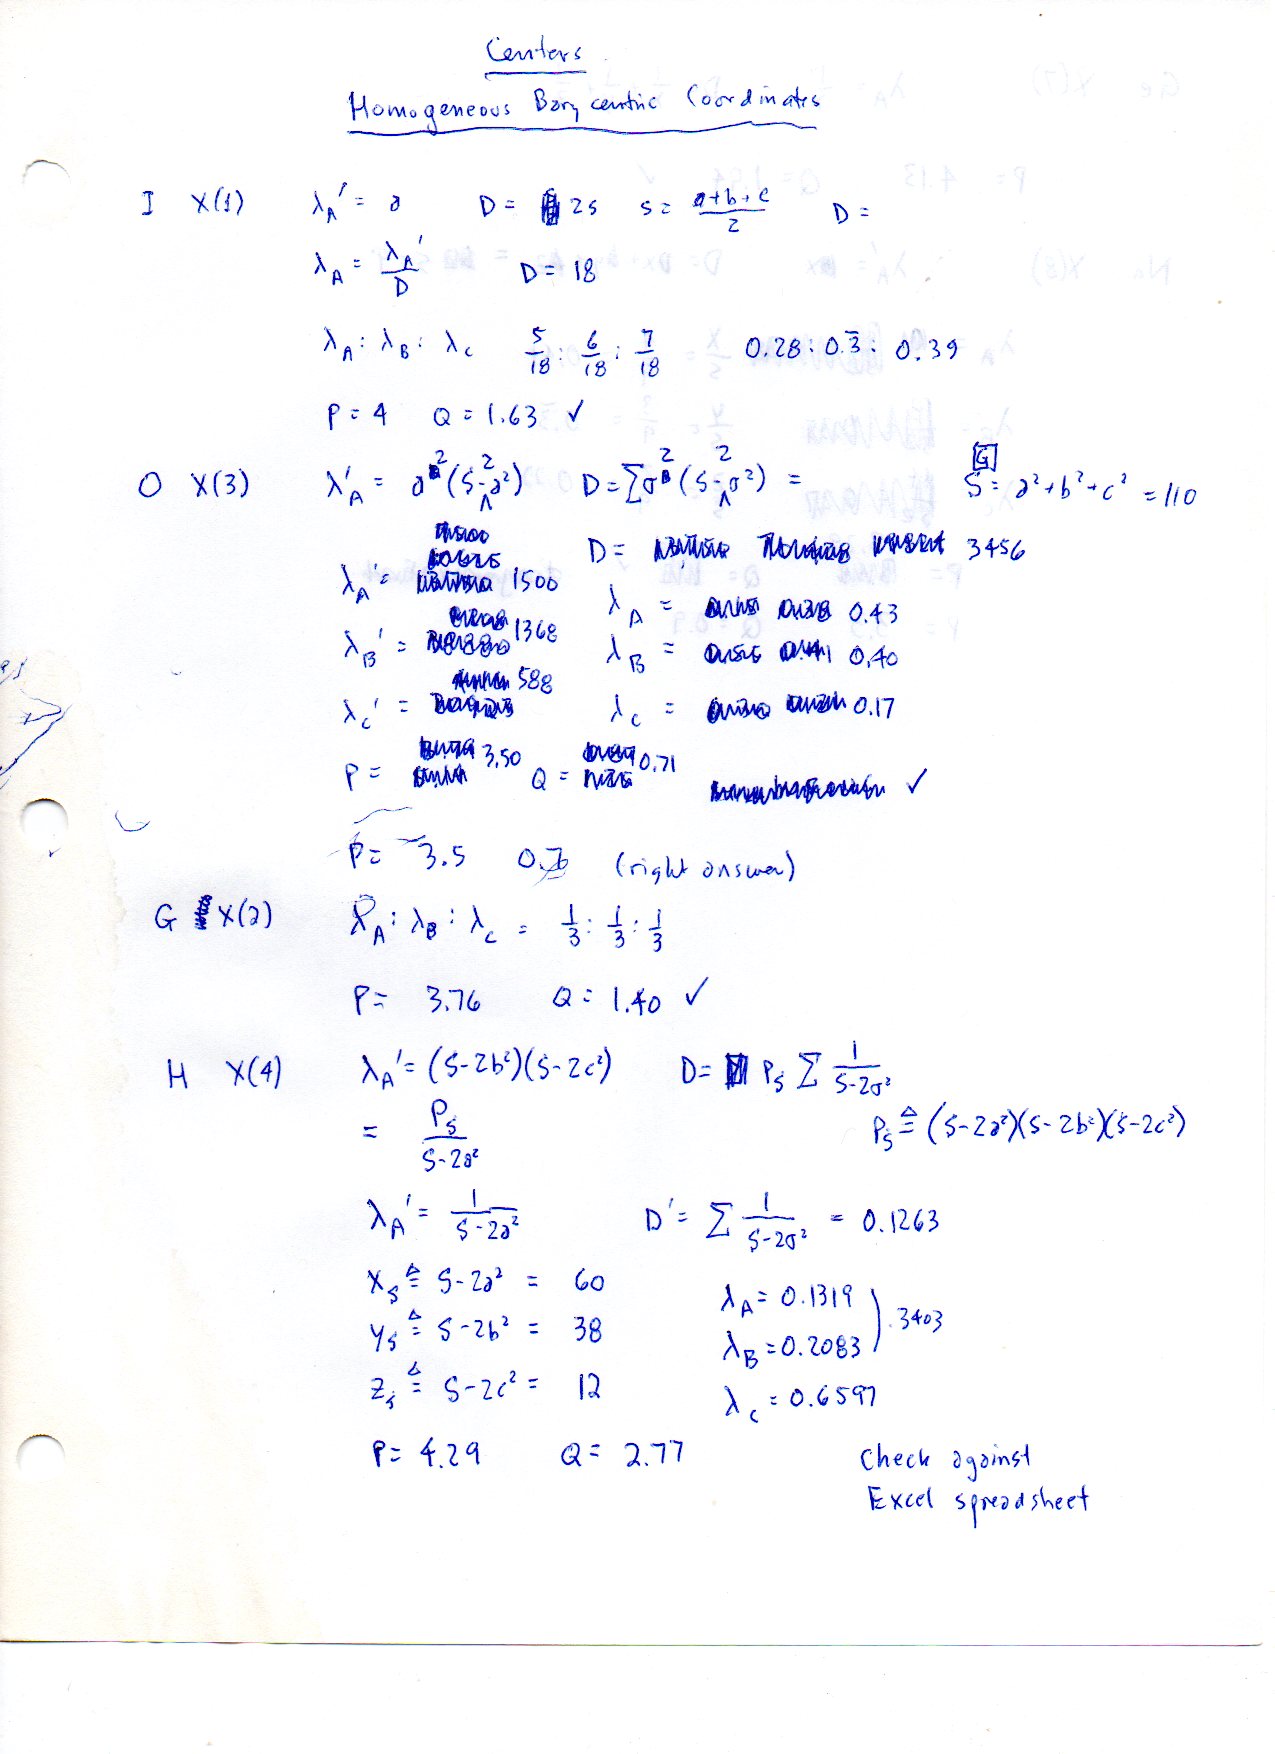 Centers
Homogeneous Barycentric Coordinates
I X(1) λA' = a D = 2s s = (a+b+c)/2 D =
λA = λA'/D D = 18
λA : λB : λC 5/18 : 6/18 : 7/18 0.28 : 0.3̅ : 0.39
P = 4 Q = 1.63 ✓
O X(3) λ'A = a²(S-2a²) D = Σσ²(S-2σ²) = G S = a²+b²+c² = 110
D = 3456
λA' = 1500 λA = 0.43
λB' = 1368 λB = 0.40
λC' = 588 λC = 0.17
P = 3.50 Q = 0.71 ✓
P = 3.5 (right answer)
G X(2) λA : λB : λC = 1/3 : 1/3 : 1/3
P = 3.76 Q = 1.40 ✓
H X(4) λA' = (S-2b²)(S-2c²) D = Ps Σ 1/(S-2σ²)
= Ps/(S-2a²) Ps ≜ (S-2a²)(S-2b²)(S-2c²)
λA' = 1/(S-2a²) D' = Σ 1/(S-2σ²) = 0.1263
Xs ≜ S-2a² = 60 λA = 0.1319
Ys ≜ S-2b² = 38 λB = 0.2083 ) .3403
Zs ≜ S-2c² = 12 λC = 0.6597
P = 4.29 Q = 2.77
Check against
Excel spreadsheet